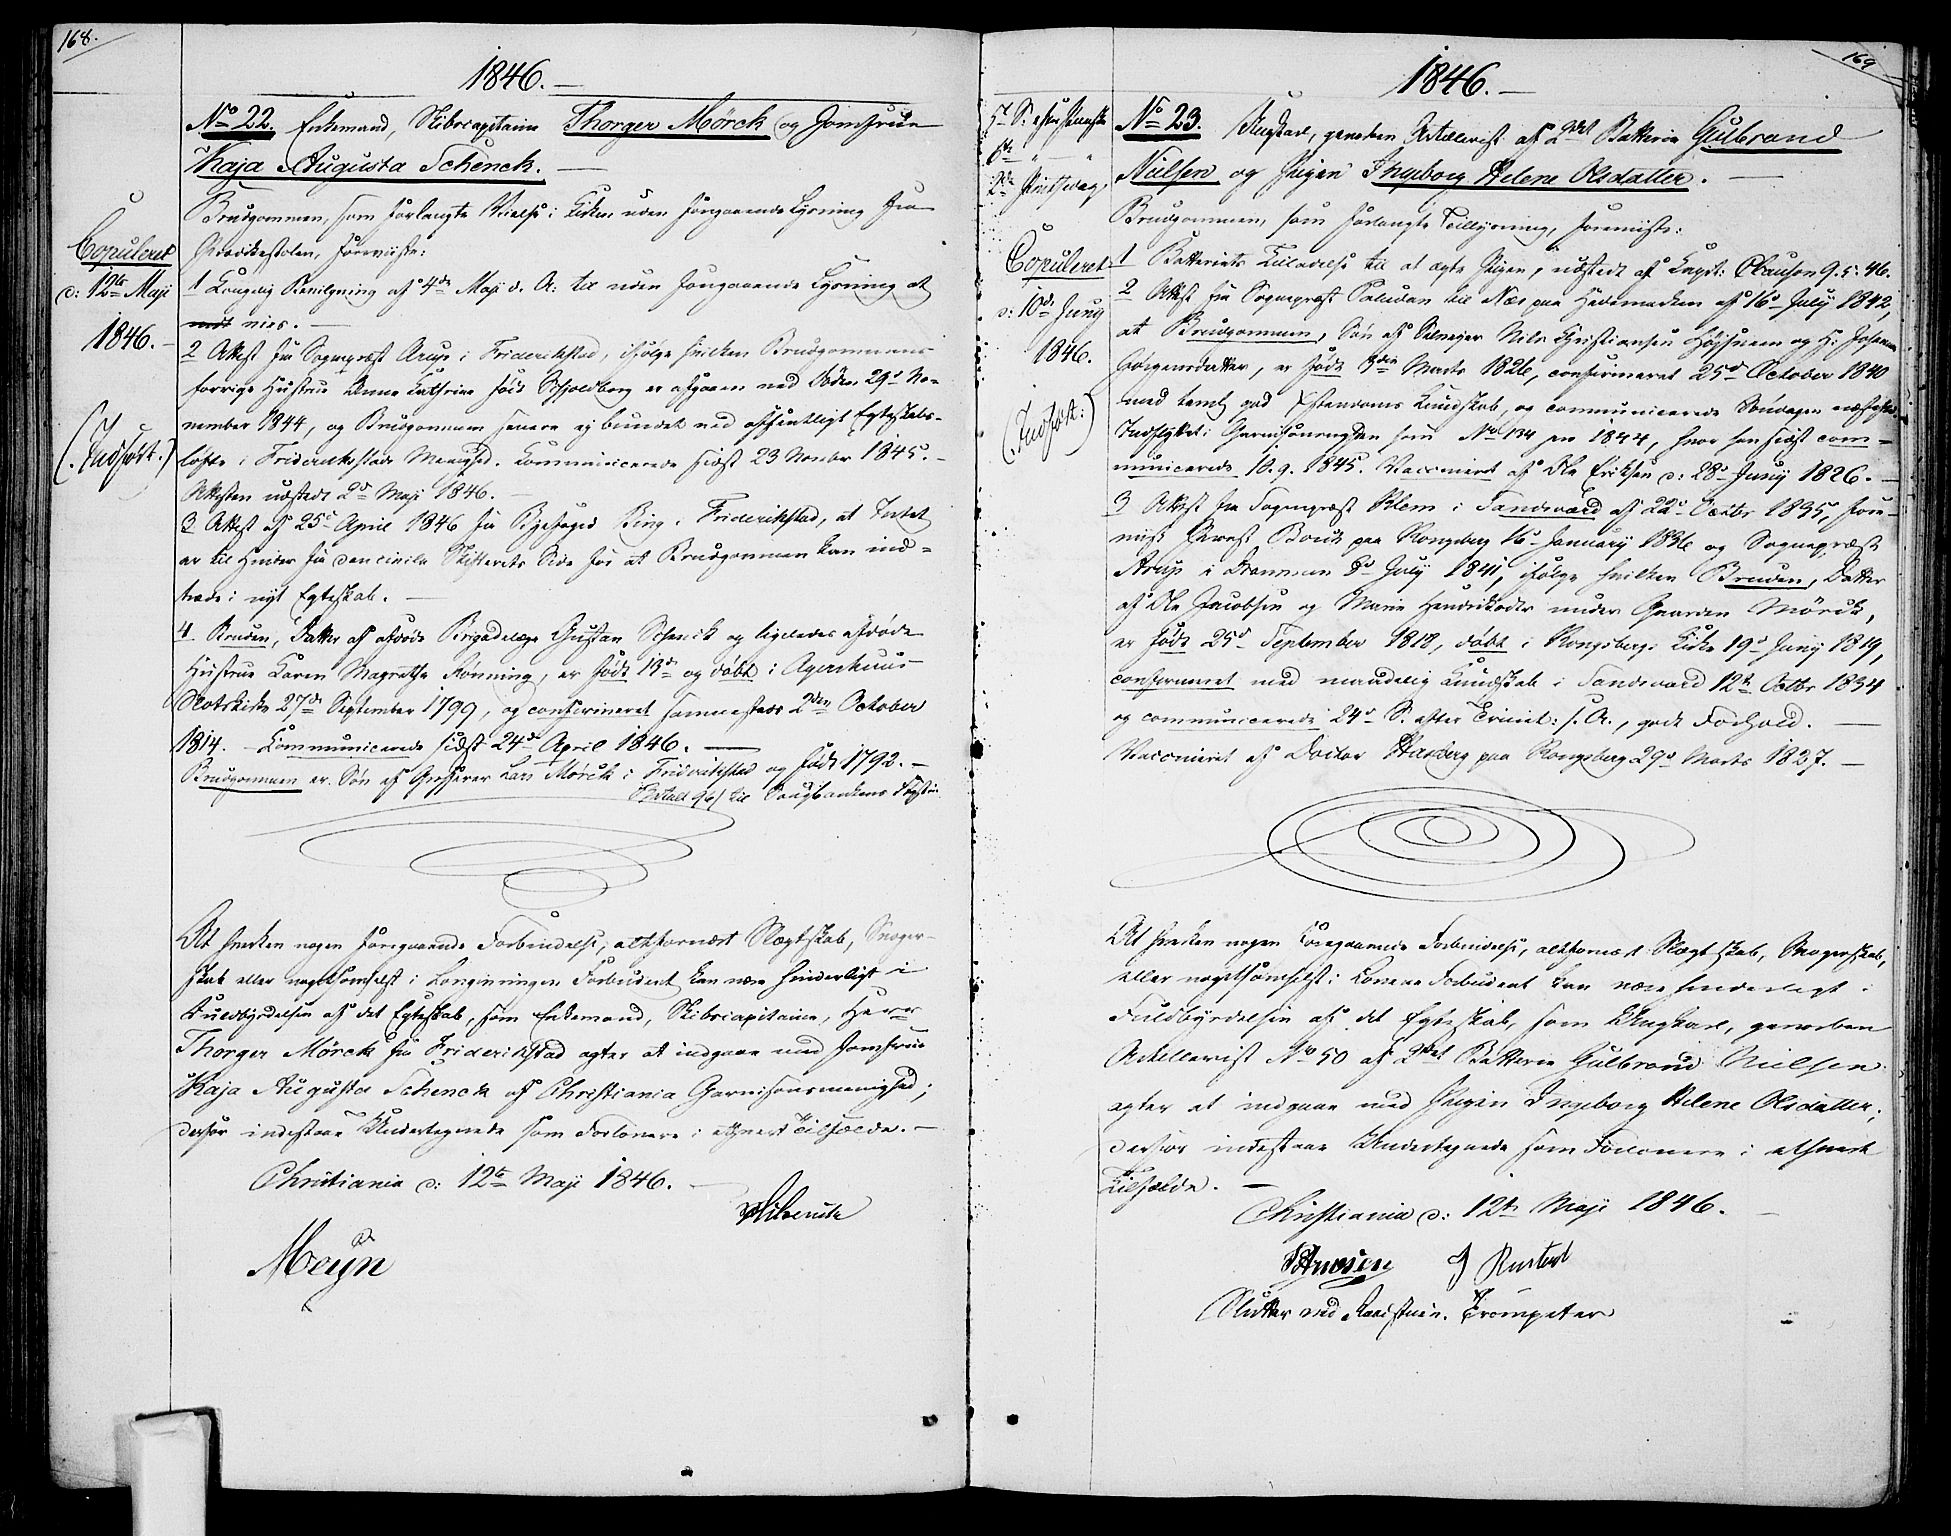 168.
1846.
Copuleret
d: 12te Maji
1846.
(Indført.)
No 22. Enkemand, Skibscapitaine Thorger Mörck og Jomfrue
Kaja Augusta Schenck.
Brudgommen, som forlangte Vielse i Kirken uden foregaaende Lysning fra
Prædikestolen, foreviiste:
1 Kongelig Bevilgning af 4de Maji d. A: til uden foregaaende Lysning at
vies.
2 Attest fra Sognepræst Arup i Friderikstad, ifølge hvilken Brudgommens
forrige Hustrue Anne Cathrine født Schjoldborg er afgaaen ved Døden 29d No-
vember 1844, og Brudgommen senere ej bundet ved offentligt Egteskabs-
løfte i Friderikstads Menighed. Communicerede sidst 23 Novbr 1845.
Attesten udstedt 2d Maji 1846.
3 Attest af 25d April 1846 fra Byefoged Bing i Friderikstad, at Intet
er til Hinder fra den civile Skifterets Side for at Brudgommen kan ind-
træde i nyt Egteskab.
4. Bruden, Datter af afdøde Brigadelæge Gustav Schenck og ligeledes afdøde
Hustrue Karen Magrethe Rönning, er født 13d og døbt i Agershuus
Slotskirke 27de September 1799, og confirmeret sammesteds 2den October
1814. Communicerede sidst 24d April 1846.
Brudgommen er Søn af Lars Mörck i Friderikstad og født 1792.
Betalt 96/ til
At hverken nogen foregaaende Forbindelse, altfornært Slægtskab, Svoger-
skab eller nogetsomhelst i Lovgivningen Forbudent kan være hinderligt i
Fuldbyrdelsen af det Egteskab, som Enkemand, Skibscapitaine, Herr
Thorger Mörck fra Friderikstad agter at indgaae med Jomfrue
Kaja Augusta Schenck af Christiania Garnisonsmenighed;
derfor indestaae Undertegnede som Forlovere i ethvert Tilfælde.
Christiania d: 12te Maji 1846.
Meijn
169
1846.
5te S. efter Paaske
6te " — "
2de Pintsedag
Copuleret
d: 10de Juny
1846.
(Indført:)
No 23. Ungkarl, geworben Artillerist af 2det Batterie Gulbrand
Nielsen og Pigen Ingeborg Helene Olsdatter.
Brudgommen, som forlangte Tillysning, foreviiste:
1 Batteriets Tilladelse til at ægte Pigen, udstedt af Capt: Clauson 9. 5. 46.
2 Attest fra Sognepræst Paludan til Næs paa Hedemarken af 16d July 1842,
at Brudgommen, Søn af Nils Christiansen og H: Johanne
Børgersdatter, er født 3die Marts 1826, confirmeret 25d October 1840
med temlg god Christendoms Kundskab, og communicerede Søndagen næstefter.
Indflyttet i Garnisonsmgheden som No 134 pro 1844, hvor han sidst com-
municerede 10. 9. 1845. Vaccineret af Ole Eriksen d: 28d Juny 1826.
3 Attest fra Sognepræst Blom i Sandsværd af 22d Octbr 1835, fore-
viist Provst paa Kongsberg 16d January 1836 og Sognepræst
Arup i Drammen 8d July 1841, ifølge hvilken Bruden, Datter
af Ole Jacobsen og Marie Hendriksdtr under Gaarden Mörck,
er født 25d September 1818, døbt i Kongsbergs Kirke 19d Juny 1819,
confirmeret med maadelig Kundskab i Sandsværd 12te Octbr 1834
og communicerede 24d S. efter Trinit: s. A., godt Forhold.
Vaccineret af Doctor paa Kongsberg 29d Marts 1827.
At hverken nogen foregaaende Forbindelse, altfornært Slægtskab, Svogerskab,
eller nogetsomhelst i Lovene Forbudent kan være hinderligt i
Fuldbyrdelsen af det Egteskab, som Ungkarl, geworben
Artillerist No 50 af 2det Batterie Gulbrand Nielsen
agter at indgaae med Pigen Ingeborg Helene Olsdatter;
derfor indestaae Undertegnede som Forlovere i ethvert
Tilfælde.
Christiania d: 12te Maji 1846.
Slutter ved Raadstuen. Trompeter